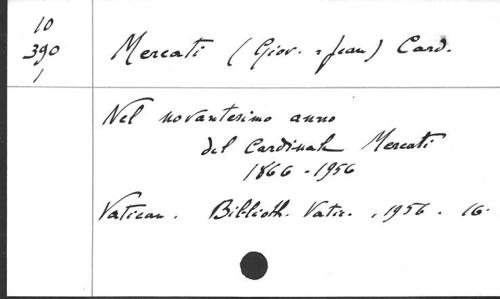 10
390
1
Mercati (Giov. = Jean) Card.
Nel novantesimo anno
del Cardinale Mercati
1866 - 1956
Vatican. Biblioth. Vatic., 1956. 16.